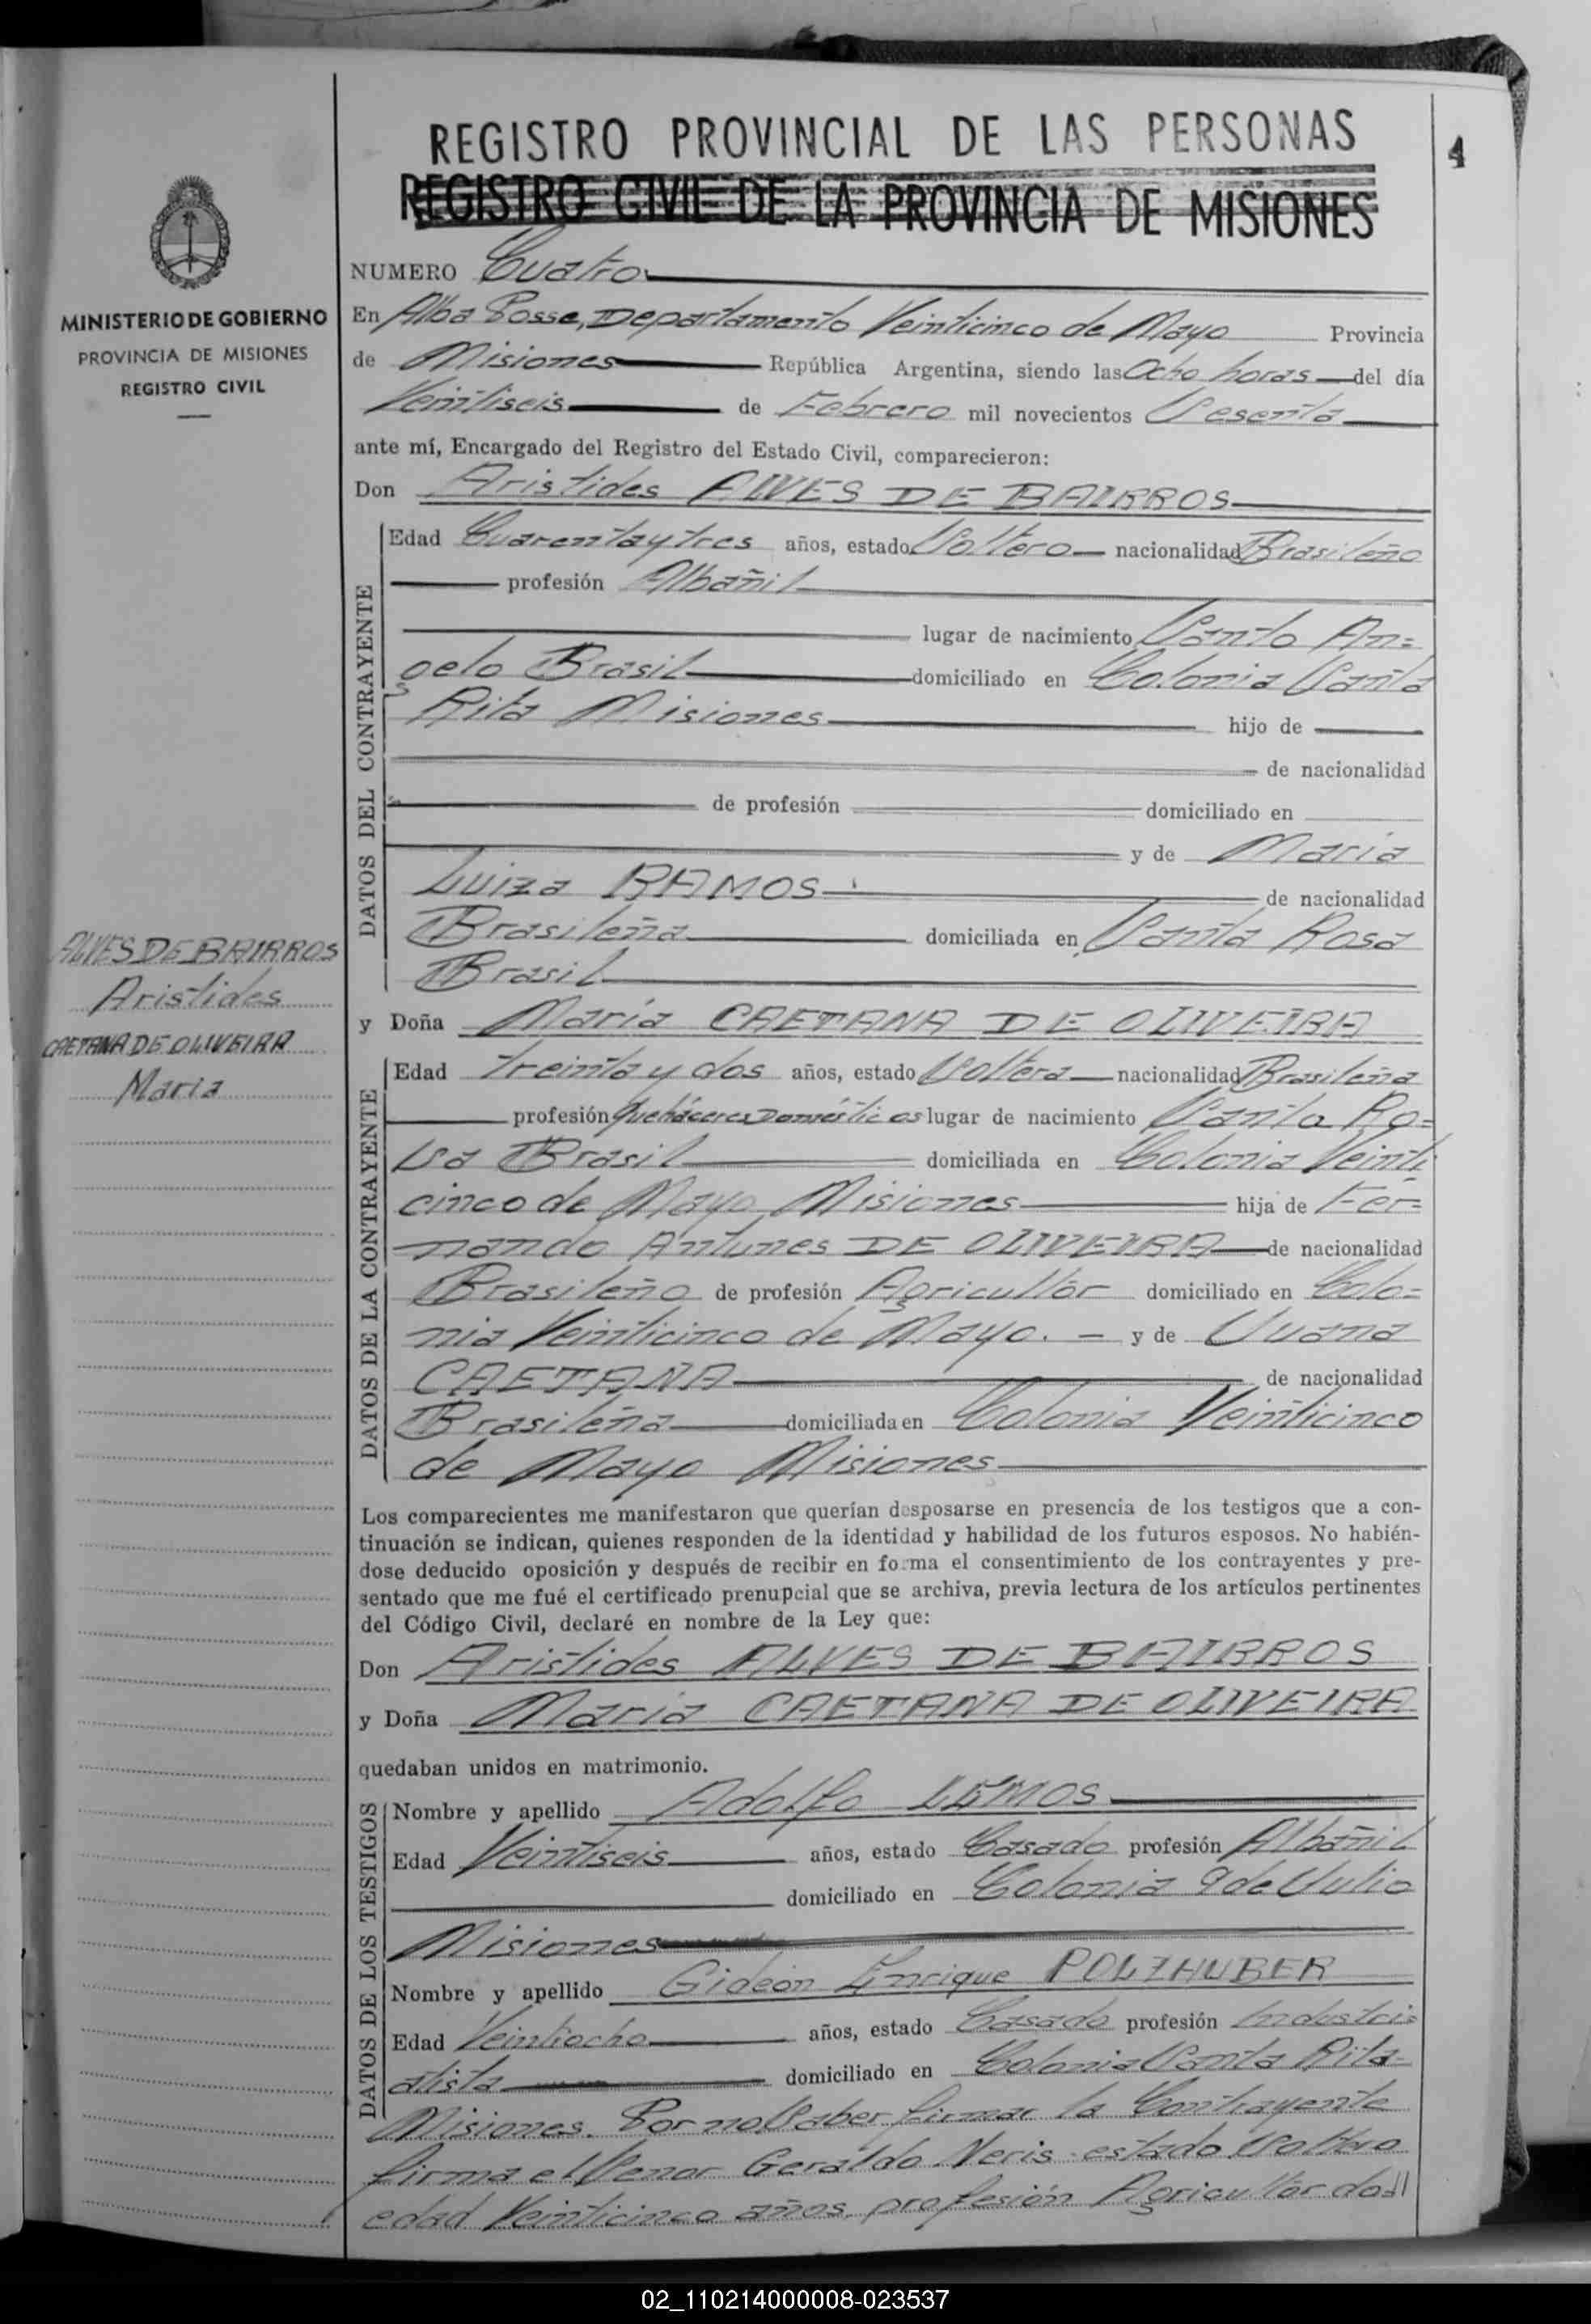 REGISTRO PROVINCIAL DE LAS PERSONAS
4
REGISTRO CIVIL DE LA PROVINCIA DE MISIONES
MINISTERIO DE GOBIERNO
PROVINCIA DE MISIONES
REGISTRO CIVIL
NUMERO Cuatro
En Alba Posse, Departamento Veinticinco de Mayo Provincia
de Misiones República Argentina, siendo las Ocho horas del día
Veintiseis de Febrero mil novecientos Sesenta
ante mí, Encargado del Registro del Estado Civil, comparecieron:
Don Aristides ALVES DE BAIRROS
DATOS DEL CONTRAYENTE
Edad Cuarentaytres años, estado Soltero nacionalidad Brasileño
profesión Albañil
lugar de nacimiento Santo An=
gelo Brasil domiciliado en Colonia Santa
Rita Misiones hijo de
de nacionalidad
de profesión domiciliado en
y de María
Luiza RAMOS de nacionalidad
Brasileña domiciliada en Santa Rosa
Brasil
ALVES DE BAIRROS
Aristides
CAETANA DE OLIVEIRA
Maria
y Doña María CAETANA DE OLIVEIRA
DATOS DE LA CONTRAYENTE
Edad Treinta y dos años, estado Soltera nacionalidad Brasileña
profesión Quehaceres Domésticos lugar de nacimiento Santa Ro=
sa Brasil domiciliada en Colonia Veinti
cinco de Mayo Misiones hija de Fer=
nando Antunes DE OLIVEIRA de nacionalidad
Brasileño de profesión Agricultor domiciliado en Colo=
nia Veinticinco de Mayo. - y de Juana
CAETANA de nacionalidad
Brasileña domiciliada en Colonia Veinticinco
de Mayo Misiones
Los comparecientes me manifestaron que querían desposarse en presencia de los testigos que a con-
tinuación se indican, quienes responden de la identidad y habilidad de los futuros esposos. No habién-
dose deducido oposición y después de recibir en forma el consentimiento de los contrayentes y pre-
sentado que me fué el certificado prenupcial que se archiva, previa lectura de los artículos pertinentes
del Código Civil, declaré en nombre de la Ley que:
Don Aristides ALVES DE BAIRROS
y Doña María CAETANA DE OLIVEIRA
quedaban unidos en matrimonio.
DATOS DE LOS TESTIGOS
Nombre y apellido Adolfo LEMOS
Edad Veintiseis años, estado Casado profesión Albañil
domiciliado en Colonia 9 de Julio
Misiones
Nombre y apellido Gideón Enrique POLZHUBER
Edad Veintiocho años, estado Casado profesión Industri
alista domiciliado en Colonia Santa Rita
Misiones. Por no Saber firmar la Contrayente
firma el Señor Geraldo Neris estado Soltero
edad Veinticinco años, profesión Agricultor
02_110214000008-023537